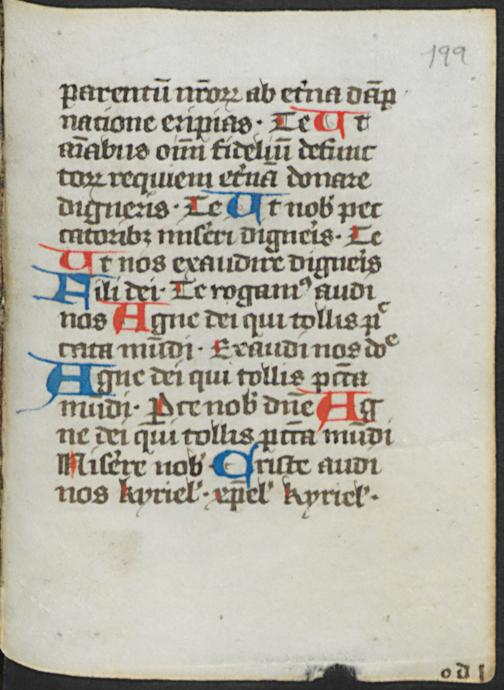 199
parentū nr̄oꝝ ab et̾na dāp
natione eripias · Te Ut
aīabus om̄i fideliū defunc
toꝝ requiem et̾nā donare
digneris · Te Ut nob̾ pec
catoribꝫ mis̾eri digneis · Te
Ut nos exaudire digneis
Fili dei · Te rogamꝰ audi
nos Agne dei qui tollis pc̄
cata mūdi · Exaudi nos do᷒e
Agne dei qui tollis pcc̄ta
mūdi · P̾ce nob̾ dn̄e Ag
ne dei qui tollis pcc̄ta mūdi
Misere nob̾ Criste audi
nos kyriel̾ · xp̄el̾ kyriel̾ ·
od I